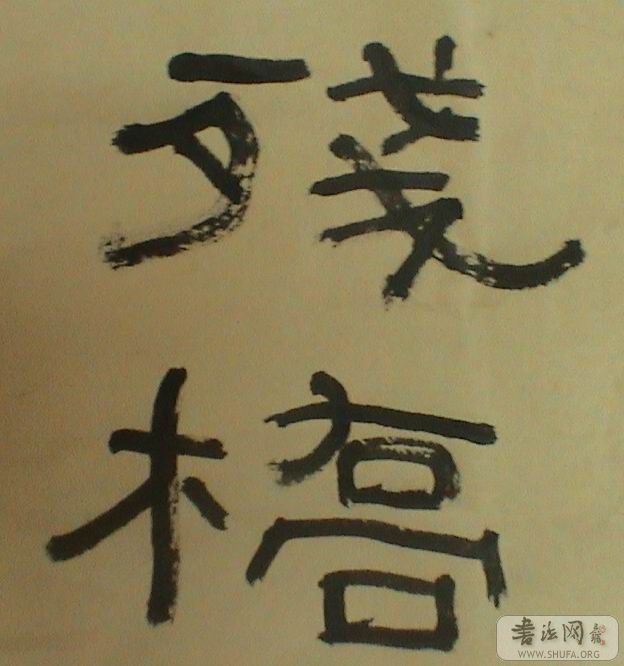 殘
橋
書法网
WWW.SHUFA.ORG